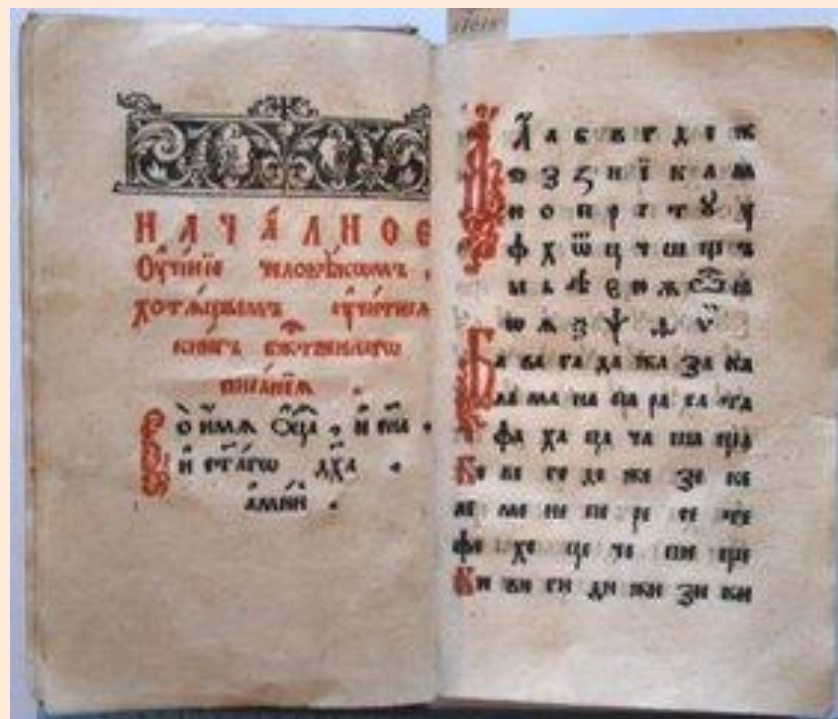 НАЧА́ЛНОЕ
Оу҆че́нїе человѣ́кѡмъ,
хотѧ́щымъ оу҆чи́тисѧ
кни́гъ бж҃е́ственнагѡ
писа́нїѧ .
Во и҆́мѧ Ѻ҆ц҃а̀, и҆ сн҃а,
и҆ ст҃а́гѡ дх҃а .
а҆ми́нь .
А а б в г д е ж
ѕ з ꙁ и ї к л м
н о п р с т ꙋ у
ф х ѿ ц ч ш щ ъ
ы ь ѣ є ю ѫ ѡ
ѡ ѧ ѯ ѱ ѳ ѵ
Ба ва га да жа за ка
ла ма на па ра са та
фа ха ца ча ша ща
Бе ве ге де же зе ке
ле ме не пе ре се те
фе хе це че ше ще
Би ви ги ди жи зи ки